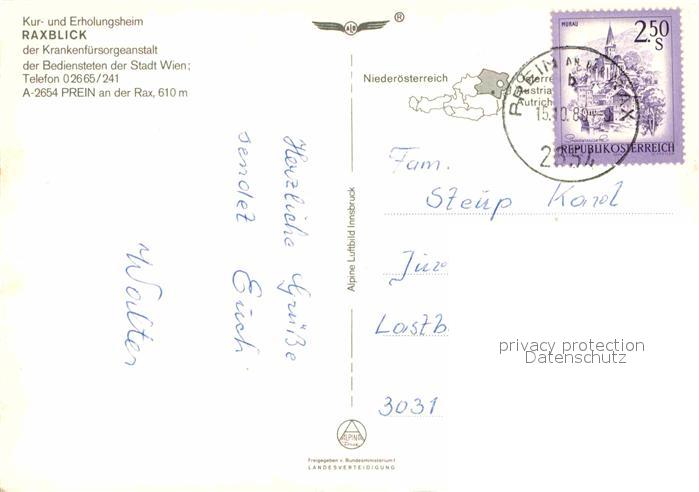 Kur- und Erholungsheim
RAXBLICK
der Krankenfürsorgeanstalt
der Bediensteten der Stadt Wien;
Telefon 02665/241
A-2654 PREIN an der Rax, 610 m
®
Niederösterreich
Österre
Austria
Autrich
MURAU
2.50
S
REPUBLIK ÖSTERREICH
PREIN AN DER RAX
15.10.80
2654
Herzliche Grüße
sendet Euch
Walter
Alpine Luftbild Innsbruck
Fam.
Steup Karol
Lastb.
3031
privacy protection
Datenschutz
ALPINA
Freigegeben v. Bundesministerium f.
LANDESVERTEIDIGUNG